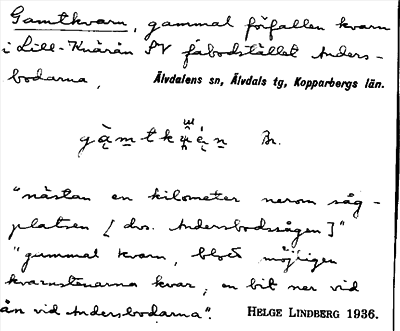 Gamtkvarn, gammal förfallen kvarn
i Lill-Knärån SV fäbodstället Anders-
bodarna, Älvdalens sn, Älvdals tg, Kopparbergs län.
Br.
"nästan en kilometer nerom såg-
platsen [dvs. Andersbodssågen]"
"gummal kvarn, blott möjligen
kvarnstenarna kvar, en bit ner vid
ån vid Andersbodarna". HELGE LINDBERG 1936.